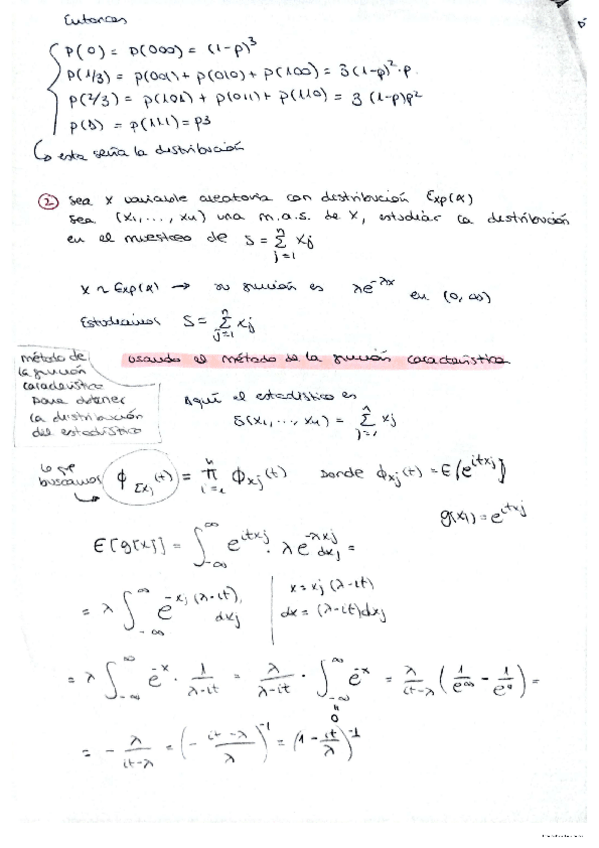 Entonces
P(0) = P(000) = (1-p)^3
P(1/3) = P(001) + P(010) + P(100) = 3(1-p)^2·p
P(2/3) = P(101) + P(011) + P(110) = 3 (1-p)p^2
P(1) = P(111) = p3
↳ esta sería la distribución
② Sea X variable aleatoria con distribución Exp(λ)
Sea (x1,..., xn) una m.a.s. de X, estudiar la distribución
en el muestreo de S = Σ_{j=1}^{n} xj
X ~ Exp(λ) → su función es λe^{-λx} en (0, ∞)
Estudiamos S = Σ_{j=1}^{n} xj
método de la función característica para obtener la distribución del estadístico
usando el método de la función característica
Aquí el estadístico es
S(x1,..., xn) = Σ_{j=1}^{n} xj
lo que buscamos → ϕ_{Σxj}(t) = π_{i=1}^{n} ϕxj(t) Donde ϕxj(t) = E[e^{itxj}]
g(xj) = e^{itxj}
E[g(xj)] = ∫_{-∞}^{∞} e^{itxj} · λe^{-λxj} dxj =
= λ ∫_{-∞}^{∞} e^{-xj(λ-it)} dxj | x = xj(λ-it)
dx = (λ-it)dxj
= λ ∫_{-∞}^{∞} e^{-x} · 1/(λ-it) = λ/(λ-it) · ∫_{-∞}^{∞} e^{-x} = λ/(it-λ) (1/e^∞ - 1/e^0) =
= - λ/(it-λ) = (- (it-λ)/λ)^{-1} = (1 - it/λ)^{-1}